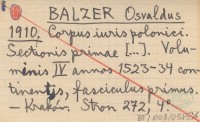 BALZER Osvaldus
1910. Corpus iuris polonici.
Sectionis primae [...]. Volu-
minis IV annos 1523-34 con-
tinentis, fasciculus primus.
— Kraków. Stron 272, 4°